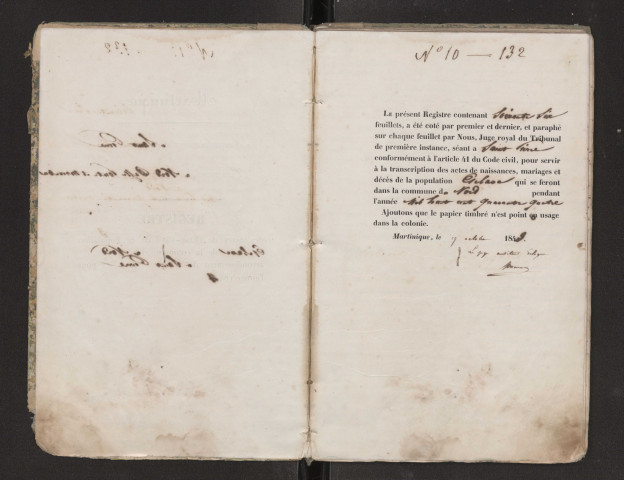 N° 10 — 132
Le présent Registre contenant Soixante Six
feuillets, a été coté par premier et dernier, et paraphé
sur chaque feuillet par Nous, Juge royal du Tribunal
de première instance, séant a Saint Pierre
conformément à l'article 41 du Code civil, pour servir
à la transcription des actes de naissances, mariages et
décès de la population Esclave qui se feront
dans la commune du Nord pendant
l'année Mil huit cent quarante quatre
Ajoutons que le papier timbré n'est point en usage
dans la colonie.
Martinique, le 7 octobre 1843.